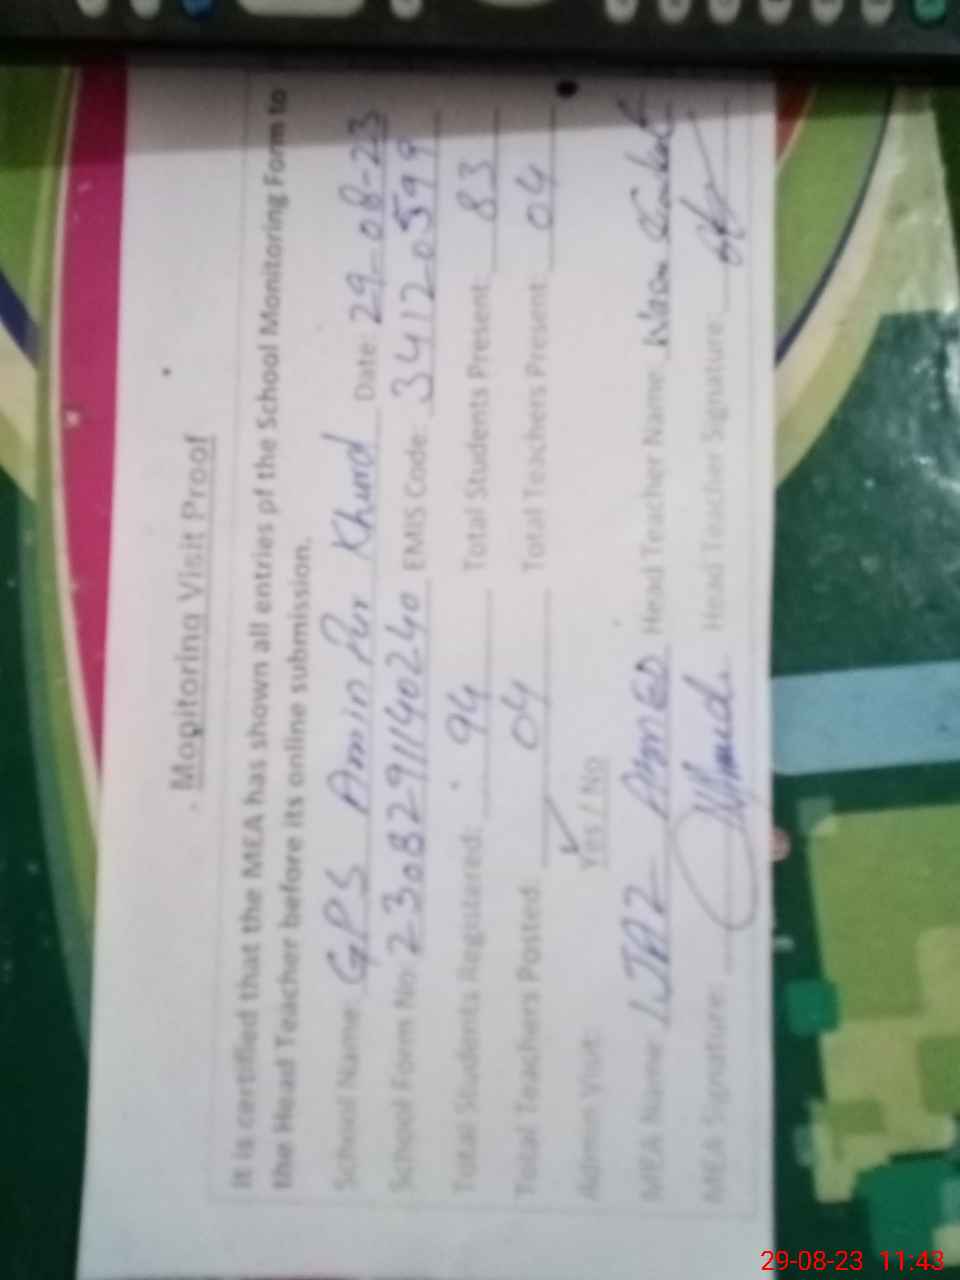 Monitoring Visit Proof
It is certified that the MEA has shown all entries pf the School Monitoring Form to
the Head Teacher before its online submission.
School Name: GPS Amin Pur Khurd Date: 29-08-23
School Form No: 230829114 0240 EMIS Code: 34120599
Total Students Registered: 94 Total Students Present: 83
Total Teachers Posted: 04 Total Teachers Present: 04
Admin Visit: Yes / No
MEA Name: IJAZ AHMED Head Teacher Name:
MEA Signature: Head Teacher Signature:
29-08-23 11:43